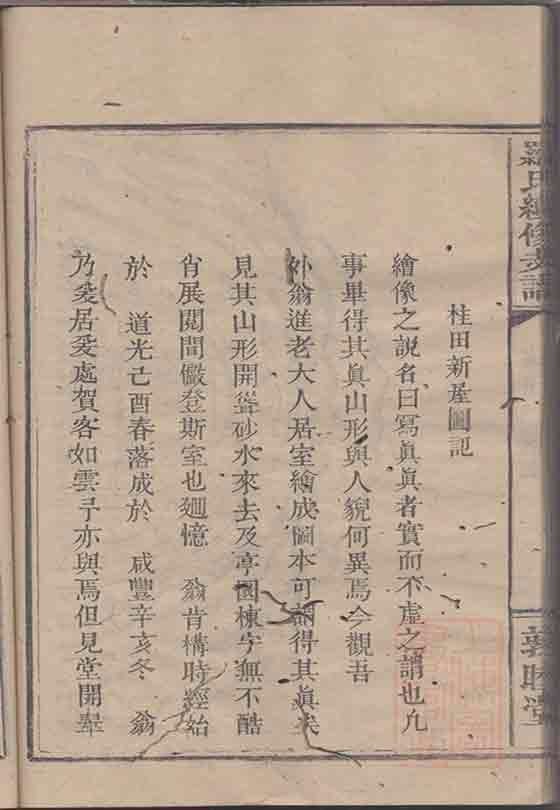 羅氏續修支譜
敦睦堂
桂田新屋圖記
繪像之說名曰寫眞眞者實而不虛之謂也凡
事畢得其眞山形與人貌何異焉今觀吾
外翁進老大人居室繪成圖本可謂得其眞矣
見其山形開聳砂水來去及亭園棟宇無不酷
肖展閱間儼登斯室也廻憶 翁肯構時經始
於 道光己酉春落成於 咸豐辛亥冬 翁
乃爰居爰處賀客如雲予亦與焉但見堂開羣